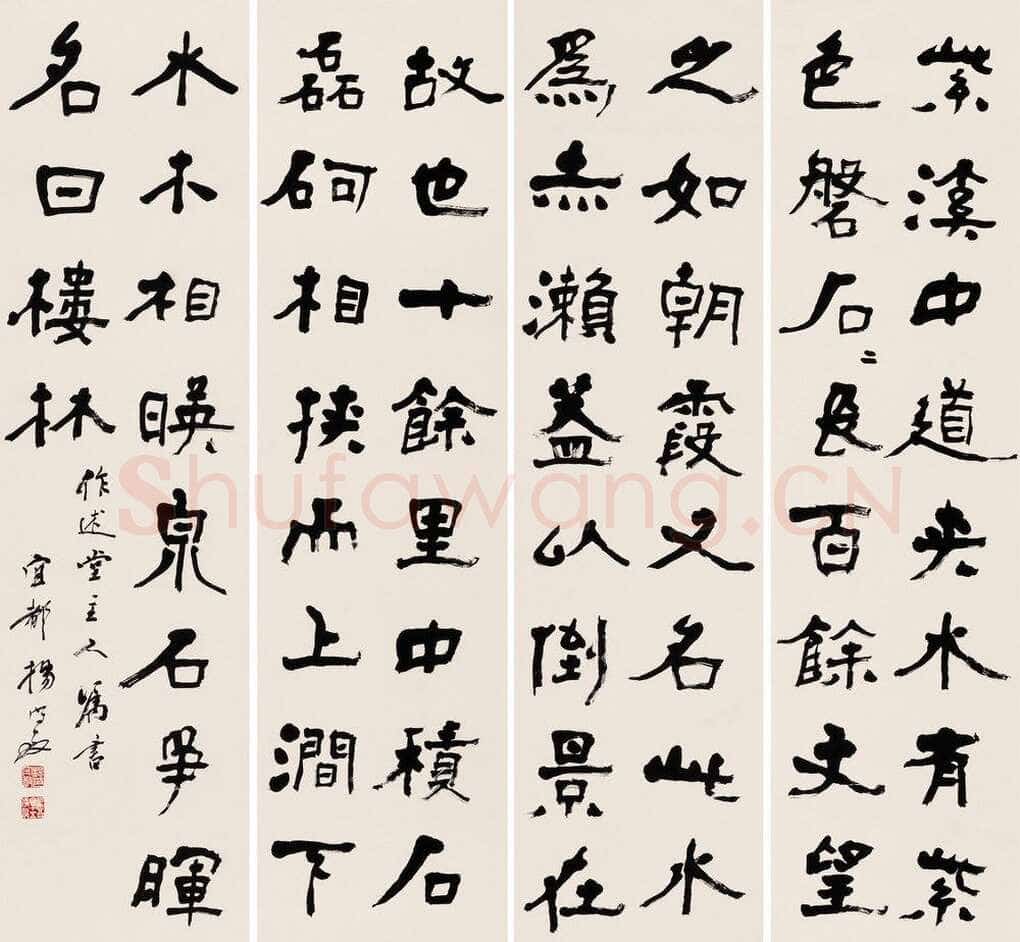 紫溪中道夾水有紫
色磐石二長百餘丈望
之如朝霞又名此水
爲赤瀨蓋以倒景在
故也十餘里中積石
磊砢相挾而上澗下
水木相暎泉石爭暉
名曰樓林
作述堂主人屬書
宜都楊守敬
Shufawang.CN